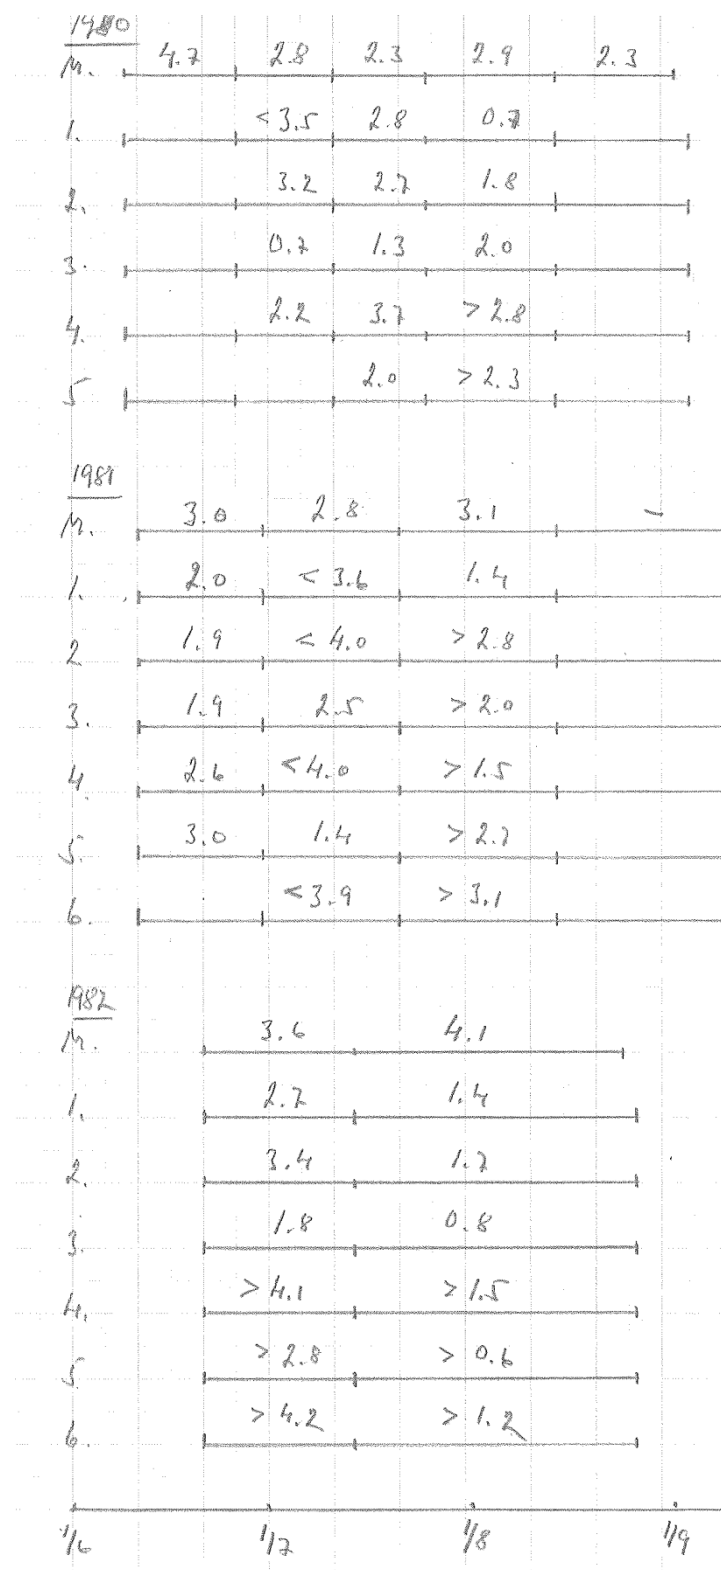 1980
M. 4.7 2.8 2.3 2.9 2.3
1. <3.5 2.8 0.7
2. 3.2 2.7 1.8
3. 0.7 1.3 2.0
4. 2.2 3.7 >2.8
5 2.0 >2.3
1981
M. 3.0 2.8 3.1 -
1. 2.0 <3.6 1.4
2 1.9 <4.0 >2.8
3. 1.9 2.5 >2.0
4. 2.6 <4.0 >1.5
5. 3.0 1.4 >2.7
6. <3.9 >3.1
1982
M. 3.6 4.1
1. 2.7 1.4
2. 3.4 1.7
3. 1.8 0.8
4. >4.1 >1.5
5 >2.8 >0.6
6. >4.2 >1.2
1/6 1/7 1/8 1/9